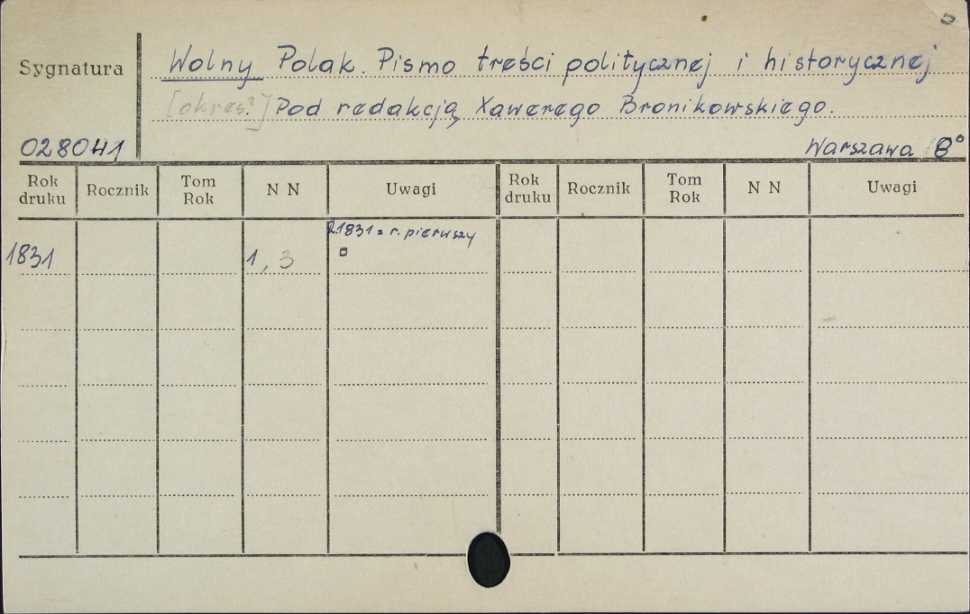 Sygnatura
Wolny Polak. Pismo treści politycznej i historycznej
[okres?] Pod redakcją Xawerego Bronikowskiego.
028041
Warszawa 8°
Rok druku Rocznik Tom Rok N N Uwagi Rok druku Rocznik Tom Rok N N Uwagi
R.1831 = r. pierwszy
1831 1, 3